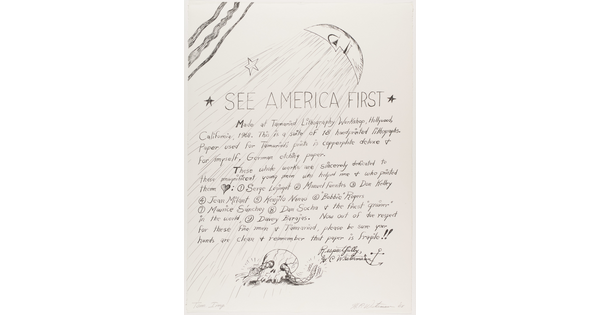 ★ SEE AMERICA FIRST ★
Made at Tamarind Lithography Workshop, Hollywood
California, 1968. This is a suite of 18 handprinted lithographs.
Paper used for Tamarind's prints is copperplate deluxe &
for myself, German etching paper.
These whole works are sincerely dedicated to
them magnificent young men who helped me & who printed
them ♥: ① Serge Lozingot ② Manuel Fuentes ③ Don Kelley
④ Jean Milant ⑤ Anthony ⑥ Robert Rogers
⑦ Maurice Sanchez ⑧ Dan Socha & the finest "grainer"
in the world, ⑨ Davey Barajas. Now out of due respect
for these fine men & Tamarind, please be sure your
hands are clean & remember that paper is fragile!!
Respectfully,